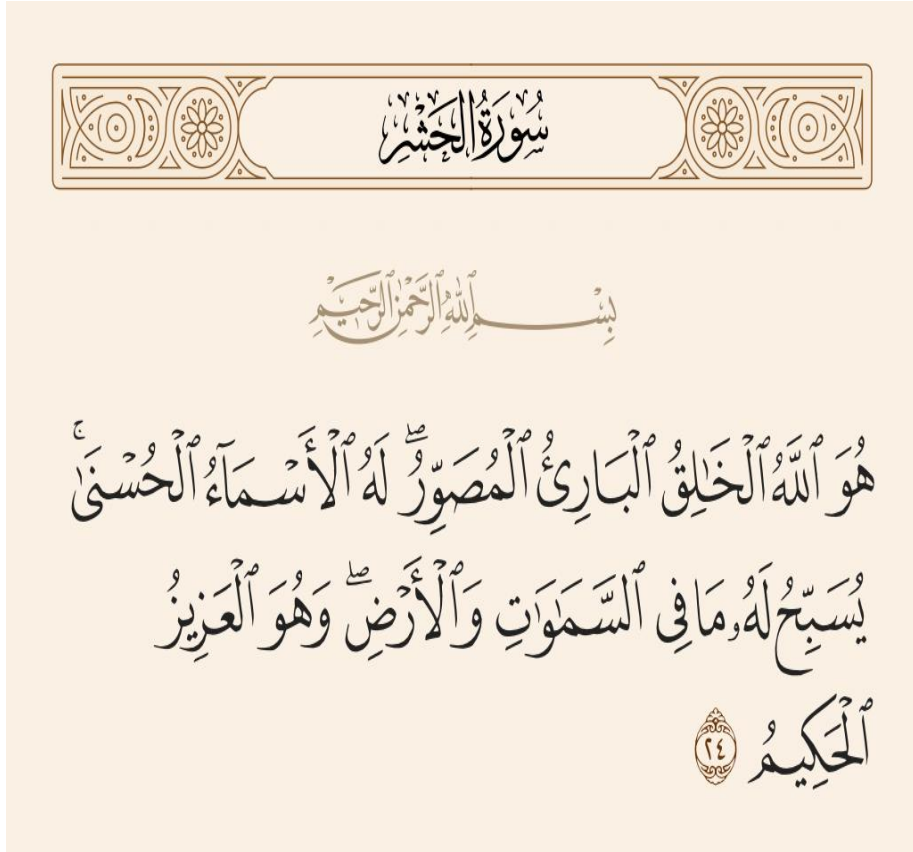 سُورَةُ الحَشْرِ
بِسْمِ ٱللَّهِ ٱلرَّحْمَٰنِ ٱلرَّحِيمِ
هُوَ ٱللَّهُ ٱلْخَٰلِقُ ٱلْبَارِئُ ٱلْمُصَوِّرُۖ لَهُ ٱلْأَسْمَآءُ ٱلْحُسْنَىٰۚ
يُسَبِّحُ لَهُۥ مَا فِى ٱلسَّمَٰوَٰتِ وَٱلْأَرْضِۖ وَهُوَ ٱلْعَزِيزُ
ٱلْحَكِيمُ ٢٤